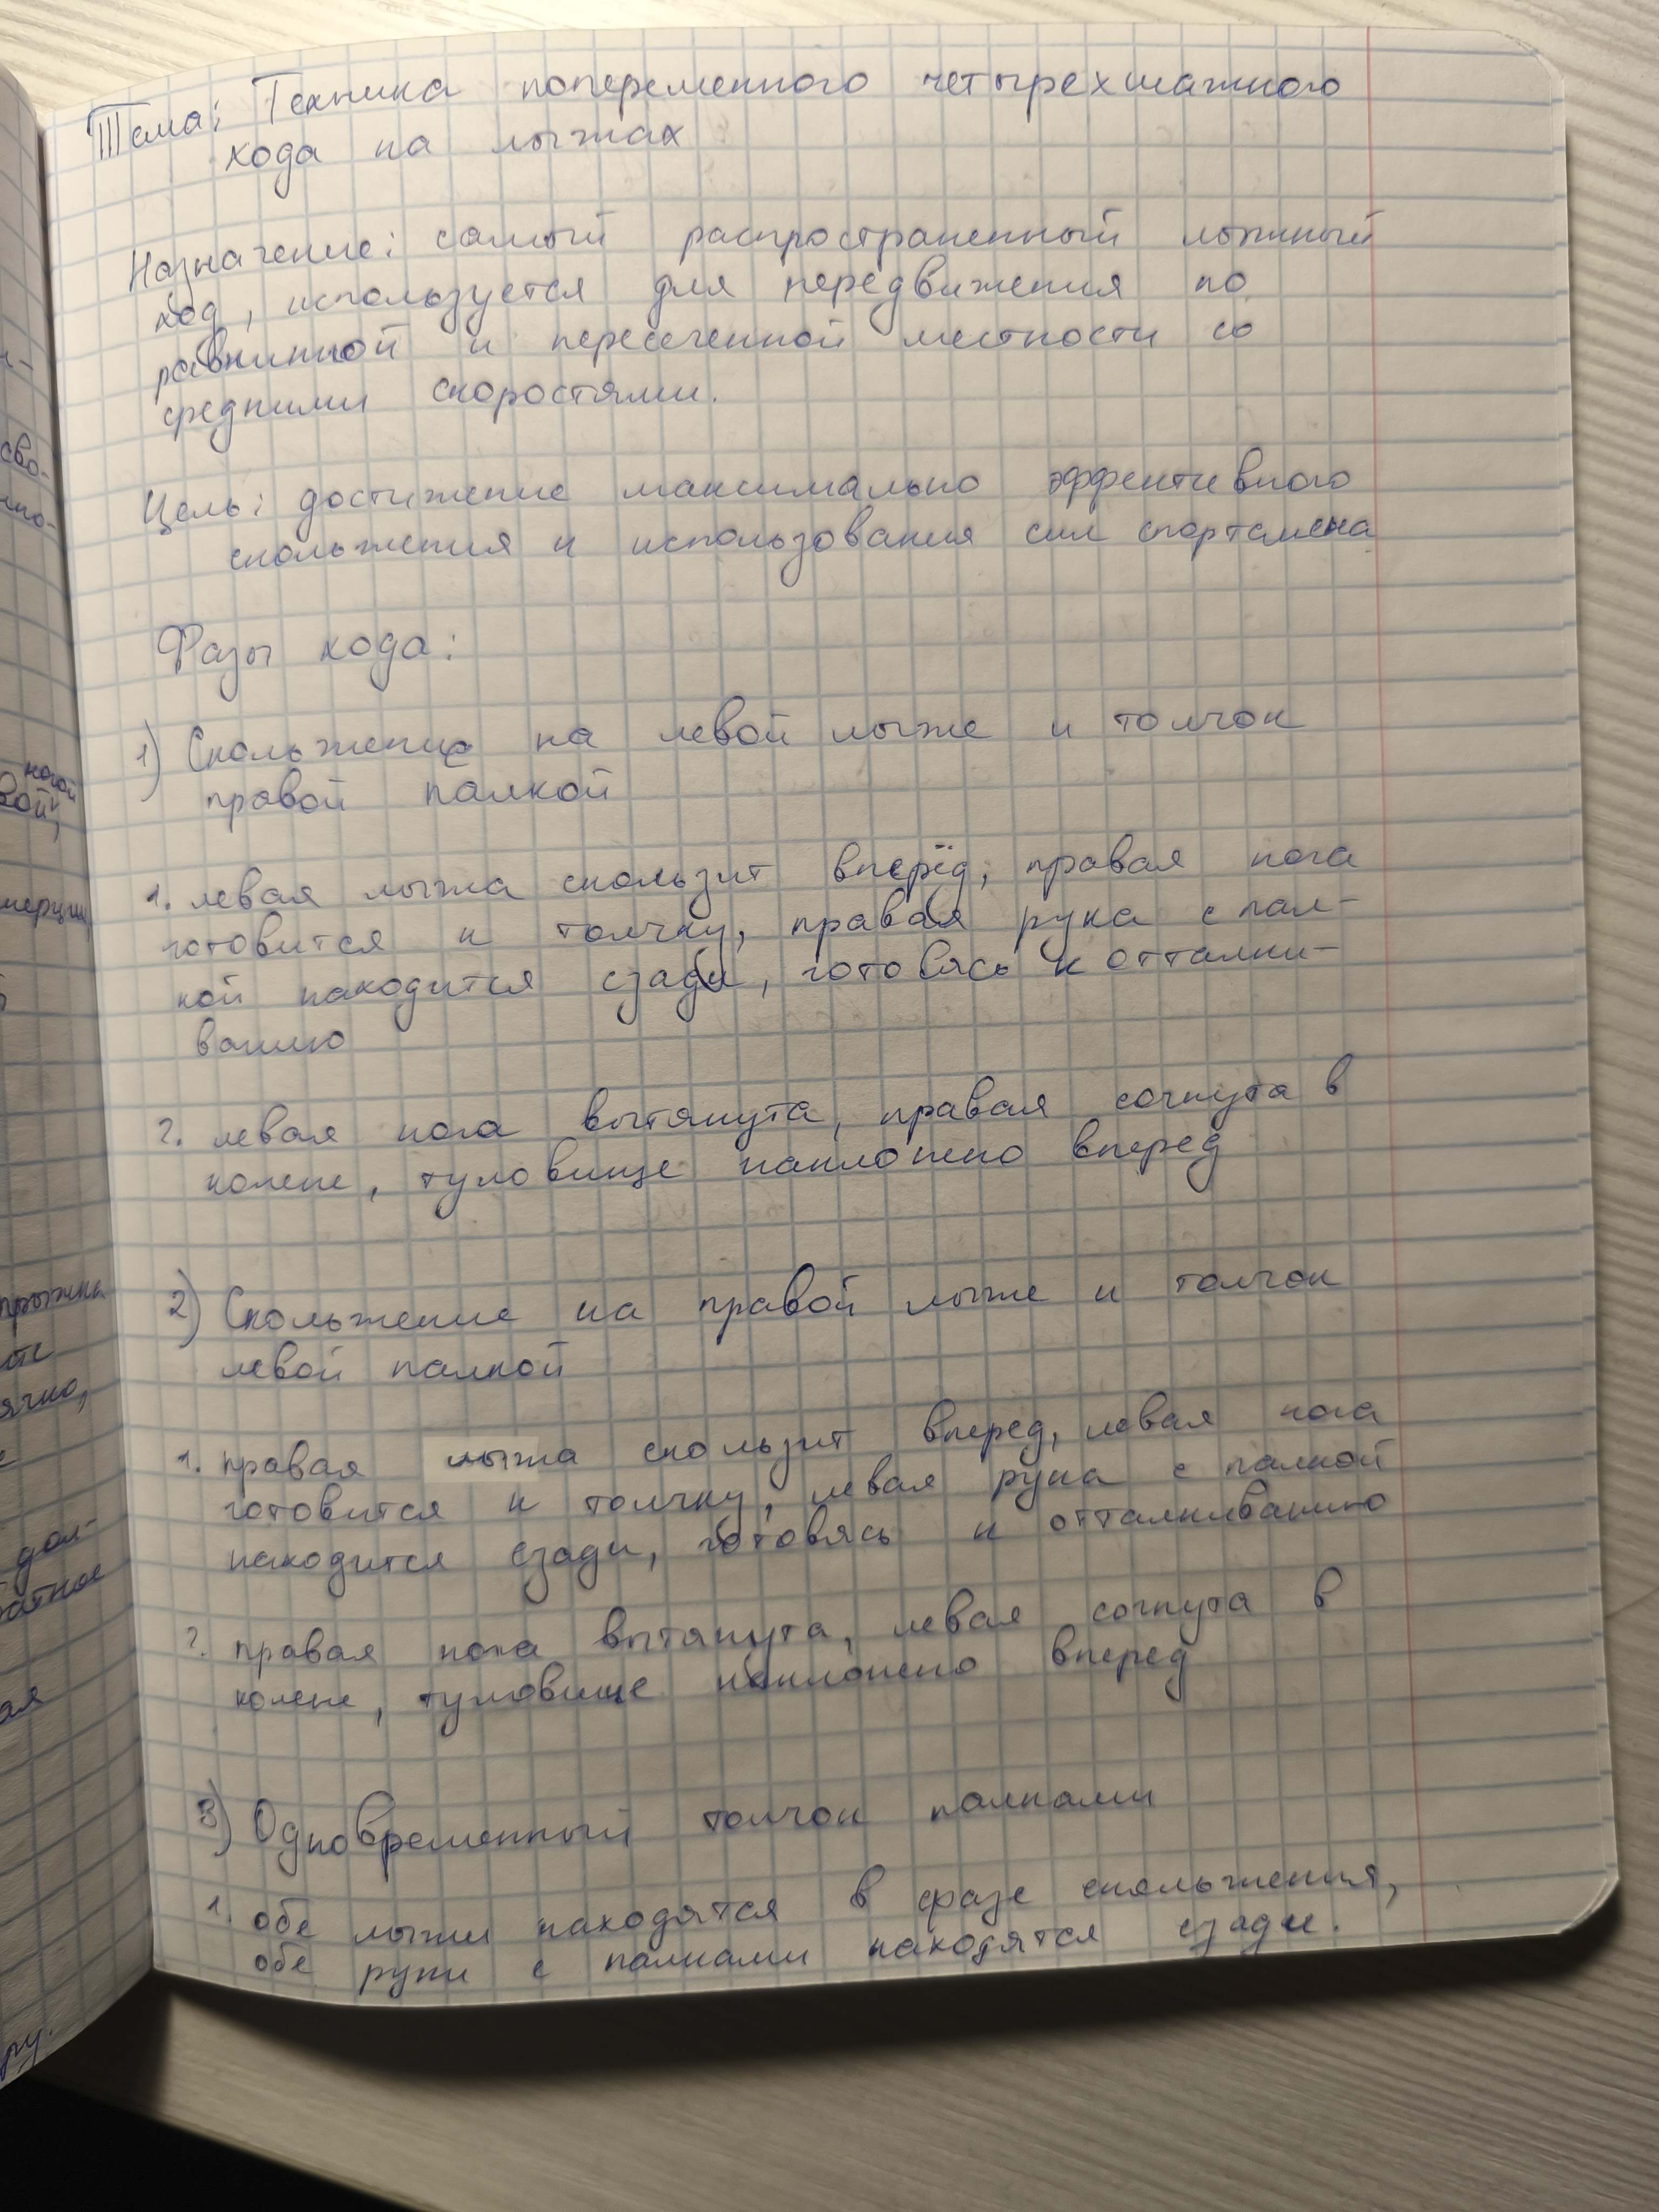 Тема: Техника попеременного четырехшажного
хода на лыжах
Назначение: самый распространенный лыжный
ход, используется для передвижения по
равнинной и пересеченной местности со
средними скоростями.
Цель: достижение максимально эффективного
скольжения и использования сил спортсмена
Фазы хода:
1) Скольжение на левой лыже и толчок
правой палкой
1. левая лыжа скользит вперёд, правая нога
готовится к толчку, правая рука с пал-
кой находится сзади, готовясь к отталки-
ванию
2. левая нога вытянута, правая согнута в
колене, туловище наклонено вперед
2) Скольжение на правой лыже и толчок
левой палкой
1. правая лыжа скользит вперед, левая нога
готовится к толчку, левая рука с палкой
находится сзади, готовясь к отталкиванию
2. правая нога вытянута, левая согнута в
колене, туловище наклонено вперед
3) Одновременный толчок палками
1. обе лыжи находятся в фазе скольжения,
обе руки с палками находятся сзади.